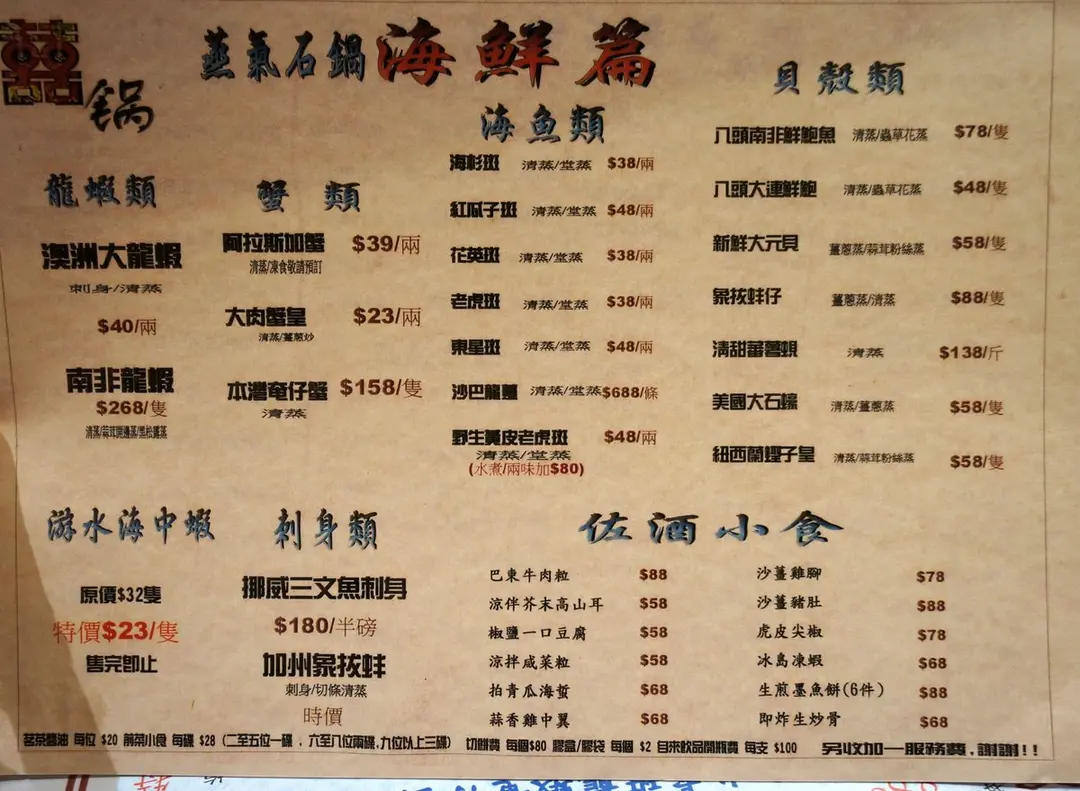 囍
锅
蒸氣石鍋海鮮篇
龍蝦類
澳洲大龍蝦
刺身/清蒸
$40/兩
南非龍蝦
$268/隻
清蒸/蒜茸開邊蒸/黑松露蒸
蟹類
阿拉斯加蟹 $39/兩
清蒸/凍食敬請預訂
大肉蟹皇 $23/兩
清蒸/薑蔥炒
本灣奄仔蟹 $158/隻
清蒸
海魚類
海杉斑 清蒸/堂蒸 $38/兩
紅瓜子斑 清蒸/堂蒸 $48/兩
花英斑 清蒸/堂蒸 $38/兩
老虎斑 清蒸/堂蒸 $38/兩
東星斑 清蒸/堂蒸 $48/兩
沙巴龍躉 清蒸/堂蒸 $688/條
野生黃皮老虎斑 $48/兩
清蒸/堂蒸
(水煮/兩味加$80)
貝殼類
八頭南非鮮鮑魚 清蒸/蟲草花蒸 $78/隻
八頭大連鮮鮑 清蒸/蟲草花蒸 $48/隻
新鮮大元貝 薑蔥蒸/蒜茸粉絲蒸 $58/隻
象拔蚌仔 薑蔥蒸/清蒸 $88/隻
清甜蕃薯蜆 清蒸 $138/斤
美國大石蠔 清蒸/薑蔥蒸 $58/隻
紐西蘭蟶子皇 清蒸/蒜茸粉絲蒸 $58/隻
游水海中蝦
原價$32隻
特價$23/隻
售完即止
刺身類
挪威三文魚刺身
$180/半磅
加州象拔蚌
刺身/切條清蒸
時價
佐酒小食
巴東牛肉粒 $88
涼伴芥末高山耳 $58
椒鹽一口豆腐 $58
涼拌咸菜粒 $58
拍青瓜海蜇 $68
蒜香雞中翼 $68
沙薑雞腳 $78
沙薑豬肚 $88
虎皮尖椒 $78
冰島凍蝦 $68
生煎墨魚餅(6件) $88
即炸生炒骨 $68
茗茶醬油 每位 $20 前菜小食 每碟 $28 (二至五位一碟，六至八位兩碟,九位以上三碟) 切餅費 每個$80 膠盒/膠袋 每個 $2 自來飲品開瓶費 每支 $100 另收加一服務費,謝謝!!